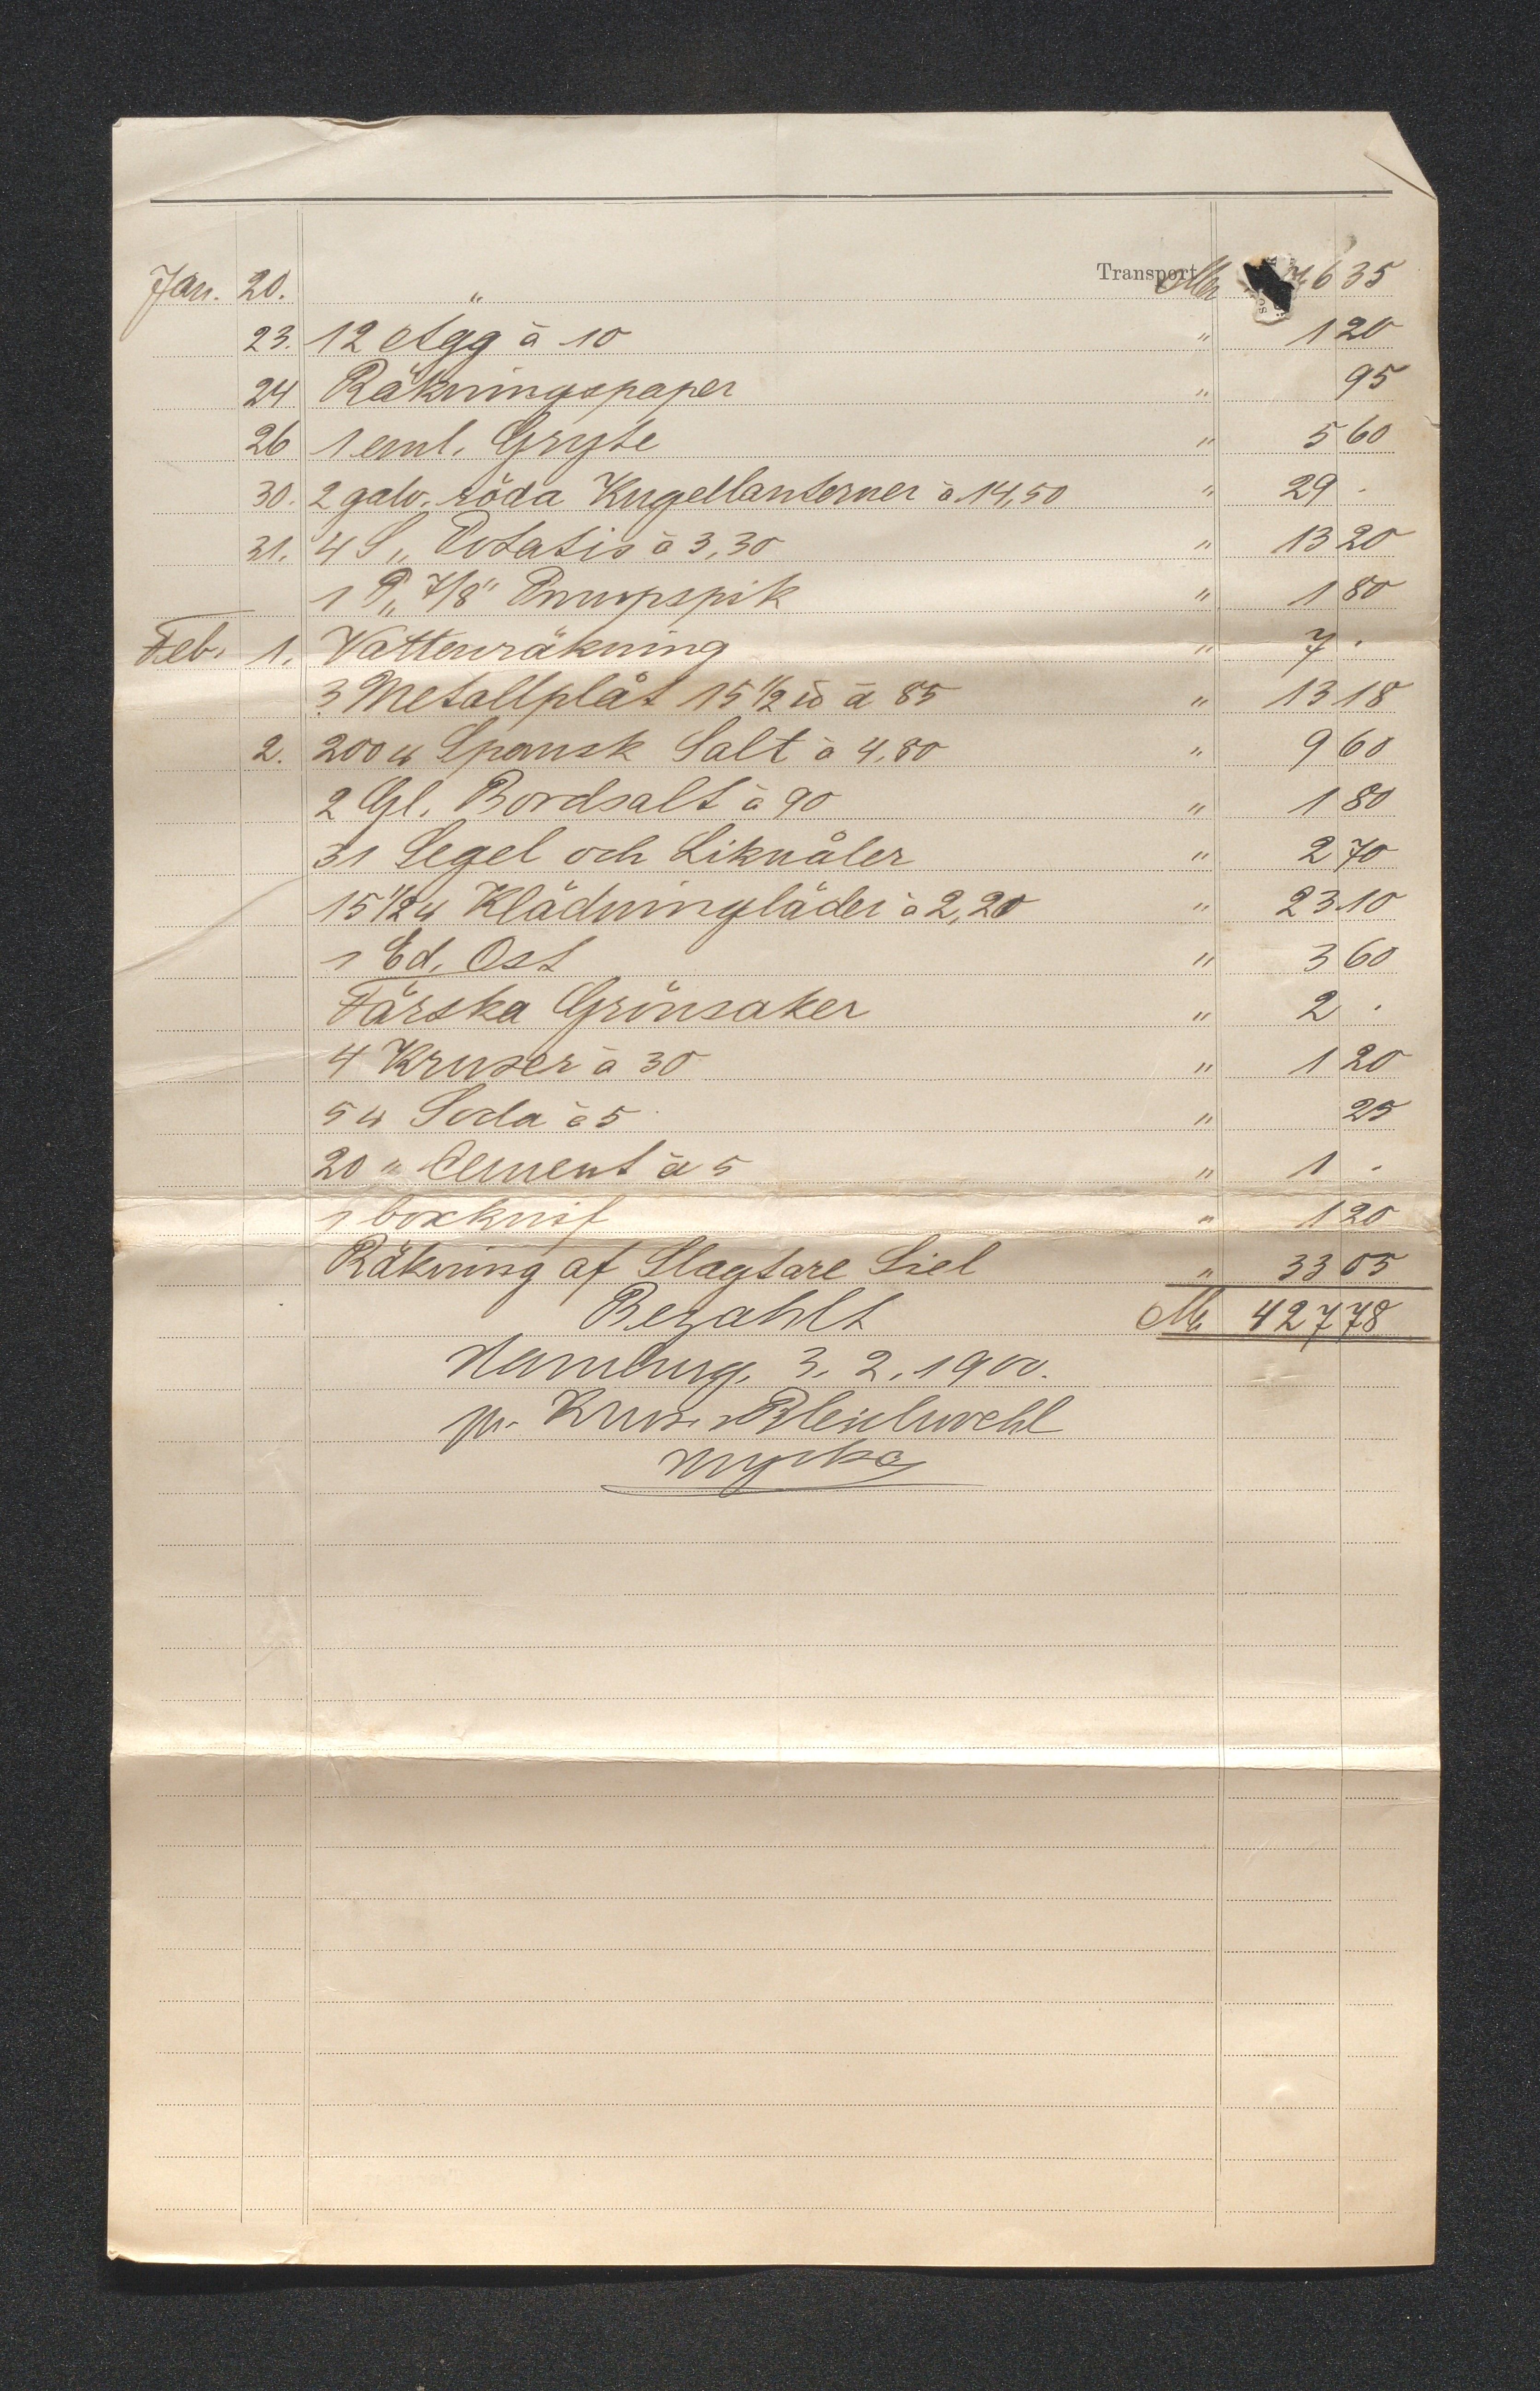 Transport
Jan. 20. " Mk 6 35
23. 12 Ägg à 10 " 1 20
24 Räkningspaper " 95
26 1 eml. Gryte " 5 60
30. 2 galv. röda Kugellanterner à 14,50 " 29 .
31. 4 S,, Potatis à 3,30 " 13 20
1 P,, 7/8" Pumpspik " 1 80
Feb. 1. Vattenräkning " 7 .
3 Metallplåt 15 1/2 à 85 " 13 18
2. 200 Spansk Salt à 4,80 " 9 60
2 Gl. Bordsalt à 90 " 1 80
31 Segel och Liknåler " 2 70
Klädningläder à 2,20 " 23 10
1 Ed. Ost " 3 60
Färska Grönsaker " 2 .
4 Kruser à 30 " 1 20
5 Soda à 5 " 25
20 " Cement à 5 " 1 .
1 boxknif " 1 20
Räkning af Slagtare Siel " 33 05
Bezahlt Mk 427 78
Hamburg, 3. 2. 1900.
pr. Kruse